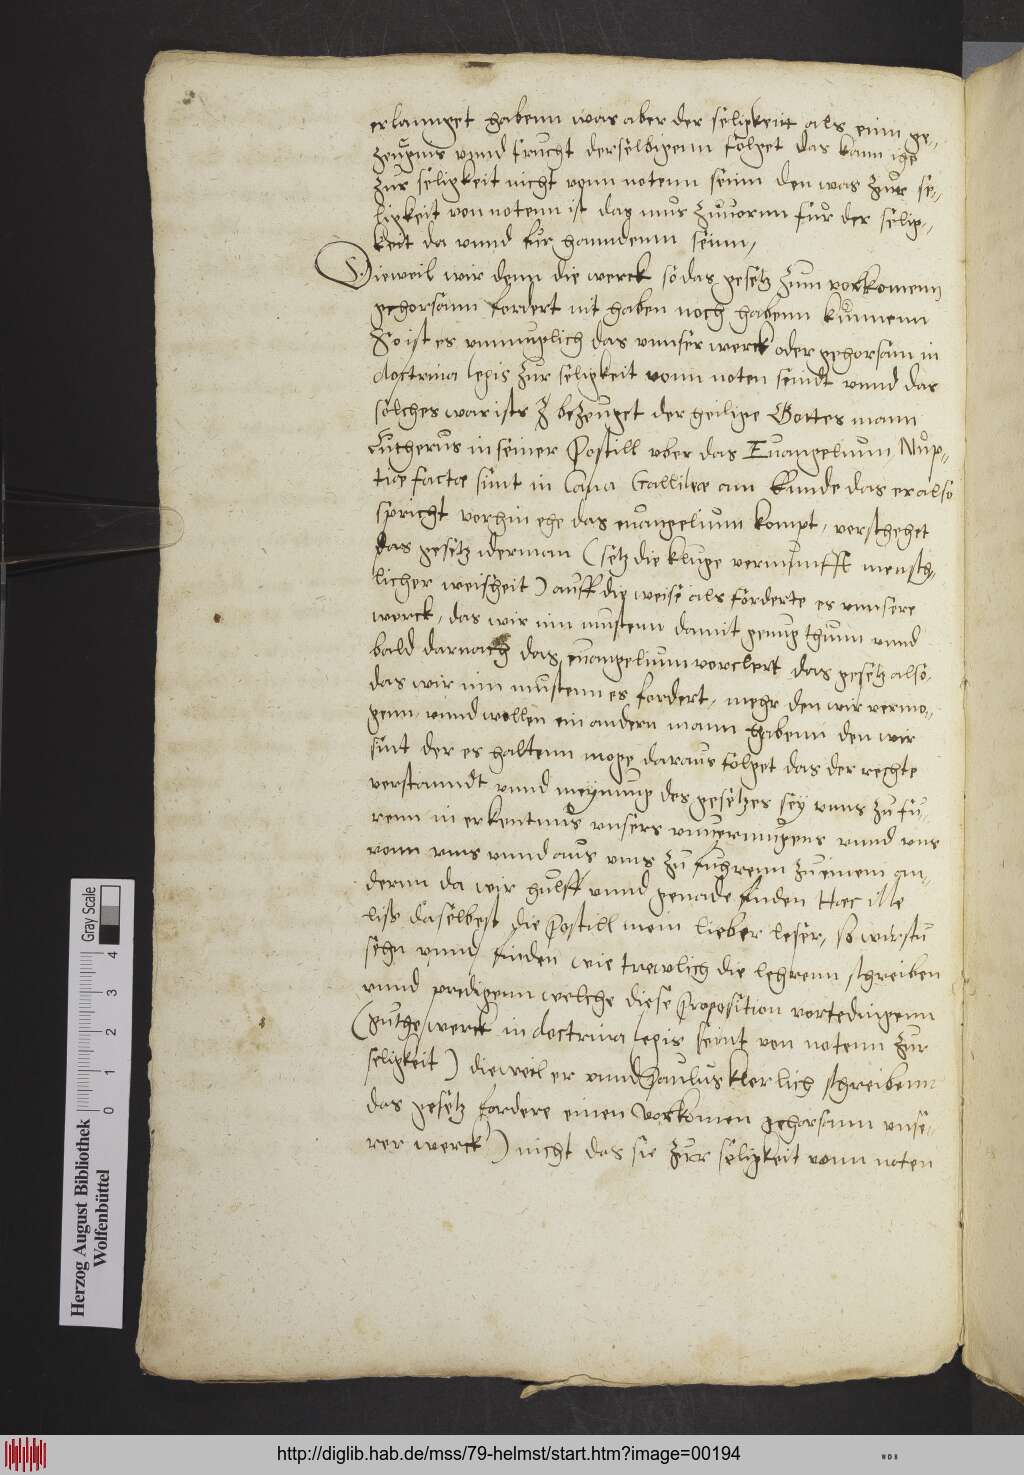 erlannget habenn was aber der seligkeitt als einn ge-
zeugnus vnnd frucht derselbigenn folget das kann ihe
zur seligkeit nicht vonn notenn seinn den was zur se-
ligkeit von notenn ist das mus zuuornn fur der selig-
keit da vnnd fur hanndenn seinn,
Dieweil wir denn die werck so das gesetz zum vorkomenn
gehorsann fordert nit haben noch habenn kunnenn
So ist es vnmuglich das vnnser werck oder gehorsam in
doctrina legis zur seligkeit vonn noten seindt vnnd das
solches war ists bezeuget der heilige Gottes mann
Lutherus in seiner Postill vber das Euangelium, Nup-
tiae factae sunt in Cana Gallileae am Ennde das er also
spricht vorhin ehe das euangelium kompt, verstehet
das gesetz iderman (setz die kluge vernunfft mensch-
licher weisheit) auff die weise als forderte es vnnsere
werck, das wir im mustenn damit genug thunn vnnd
bald darnach das euangelium vorclert das gesetz also,
das wir im mustenn es fordert, mehr den wir vermo-
genn, vnnd wollen ein andern mann habenn den wir
sint der es haltenn moge daraus folget das der rechte
verstanndt vnnd meynung des gesetzes sey vnns zu fu-
renn in erkentnus vnsers vnuermugens vnnd vns
vonn vns vnnd aus vns zu fuhrenn zu einem an-
dernn da wir hulff vnnd genade finden Haec ille
liss daselbest die Postill mein lieber leser, so wirstu
sehn vnnd finden wie trewlich die lehrenn schreiben
vnnd predigenn welche diese Proposition vortedingenn
(guthe werck in doctrina legis seint von notenn zur
seligkeit) dieweil er vnnd Paulus klerlich schreibenn
das gesetz fordere einen vorkomen gehorsann vnse-
rer werck) nicht das sie zur seligkeit vonn noten
Herzog August Bibliothek
Wolfenbüttel
0 1 2 3 4
Gray Scale
http://diglib.hab.de/mss/79-helmst/start.htm?image=00194